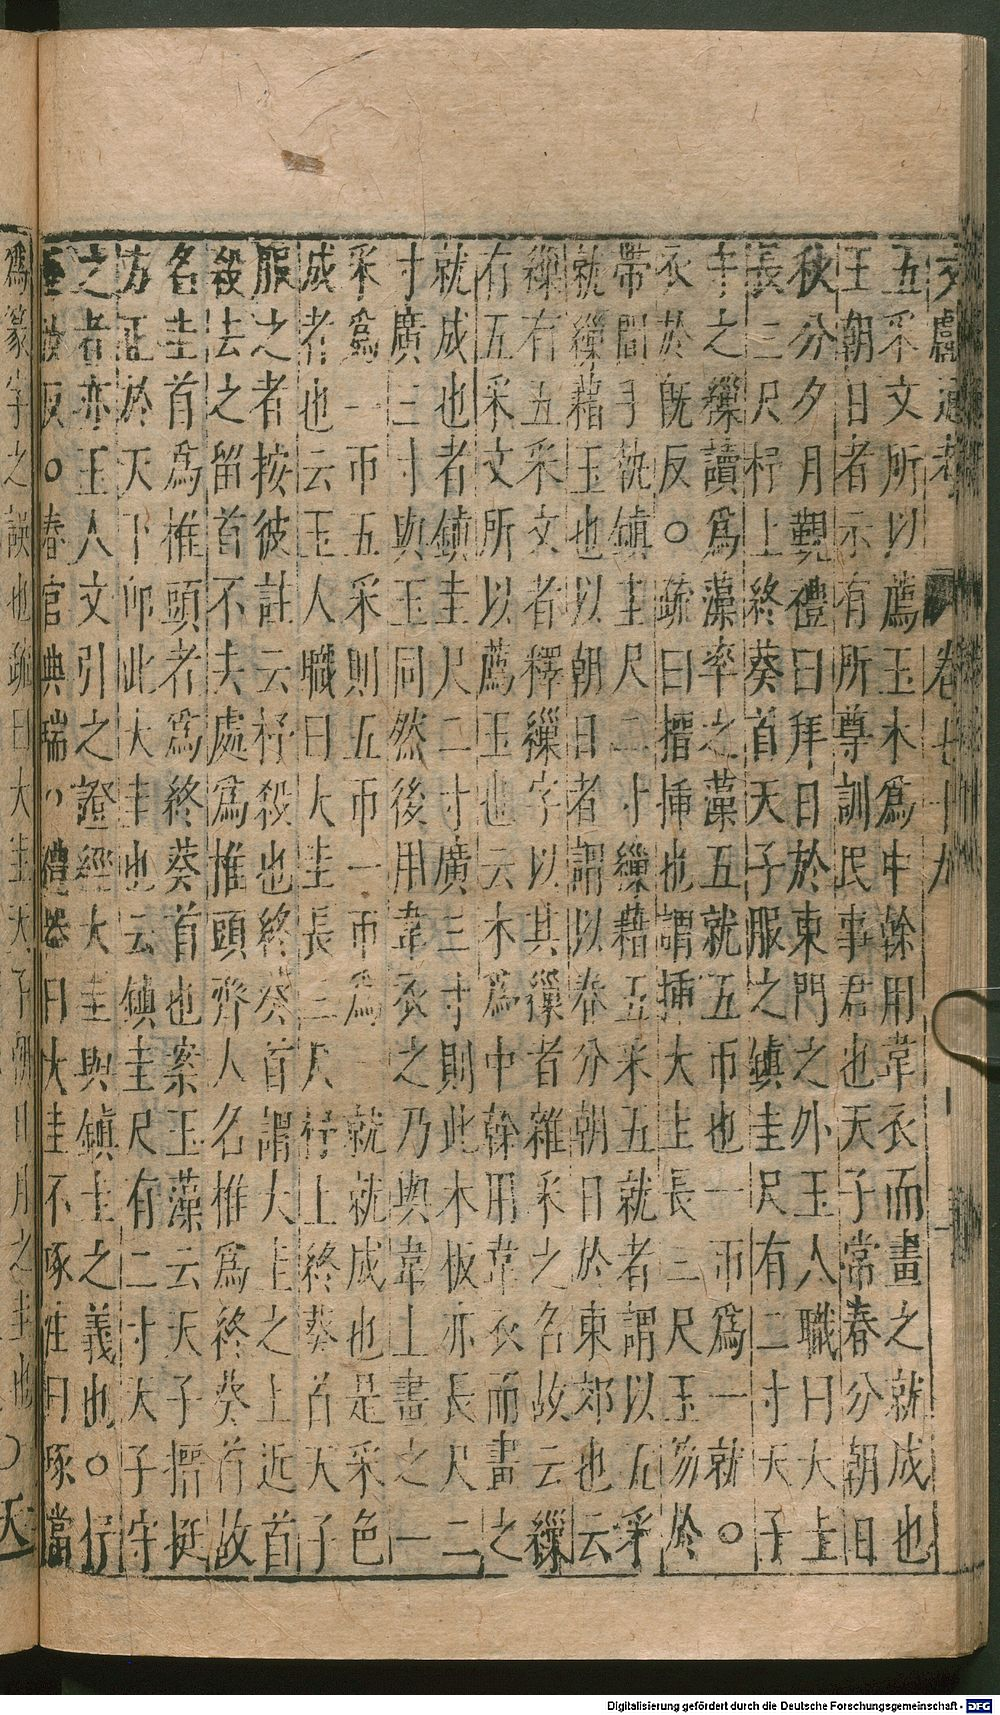 文獻通考 卷七十九
五采文所以薦玉木爲中榦用韋衣而畫之就成也
王朝日者示有所尊訓民事君也天子常春分朝日
秋分夕月覲禮曰拜日於東門之外玉人職曰大圭
長三尺杼上終葵首天子服之鎮圭尺有二寸天子
守之繅讀爲藻率之藻五就五帀也一帀爲一就○
衣於旣反○疏曰搢揷也謂揷大圭長三尺玉笏於
帶間手執鎮圭尺二寸繅藉五采五就者謂以五采
就繅藉玉也以朝日者謂以春分朝日於東郊也云
繅有五采文者釋繅字以其繅者雜采之名故云繅
有五采文所以薦玉也云木爲中榦用韋衣而畫之
就成也者鎮圭尺二寸廣三寸則此木板亦長尺二
寸廣三寸與玉同然後用韋衣之乃與韋上畫之一
采爲一帀五采則五帀一帀爲一就就成也是采色
成者也云玉人職曰大圭長三尺杼上終葵首天子
服之者按彼註云杼殺也終葵首謂大圭之上近首
殺去之留首不去處爲推頭齊人名椎爲終葵首故
名圭首爲椎頭者爲終葵首也案玉藻云天子搢珽
方正於天下卽此大圭也云鎮圭尺有二寸天子守
之者亦玉人文引之證經大圭與鎮圭之義也○杼
反○春官典瑞 禮器曰大圭不琢注曰琢當
爲篆字之誤也疏曰大圭天子朝日月之圭也○天
Digitalisierung gefördert durch die Deutsche Forschungsgemeinschaft - DFG